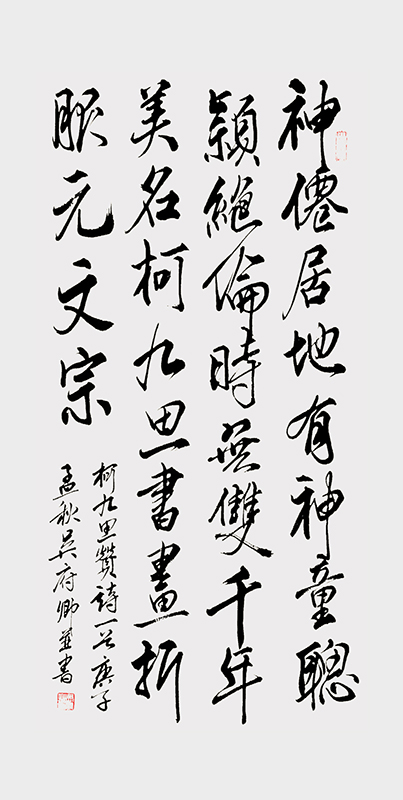 神僊居地有神童聰
穎絕倫時無雙千年
美名柯九思書畫折
服元文宗
柯九思贊詩一首庚子
孟秋吳府卿並書